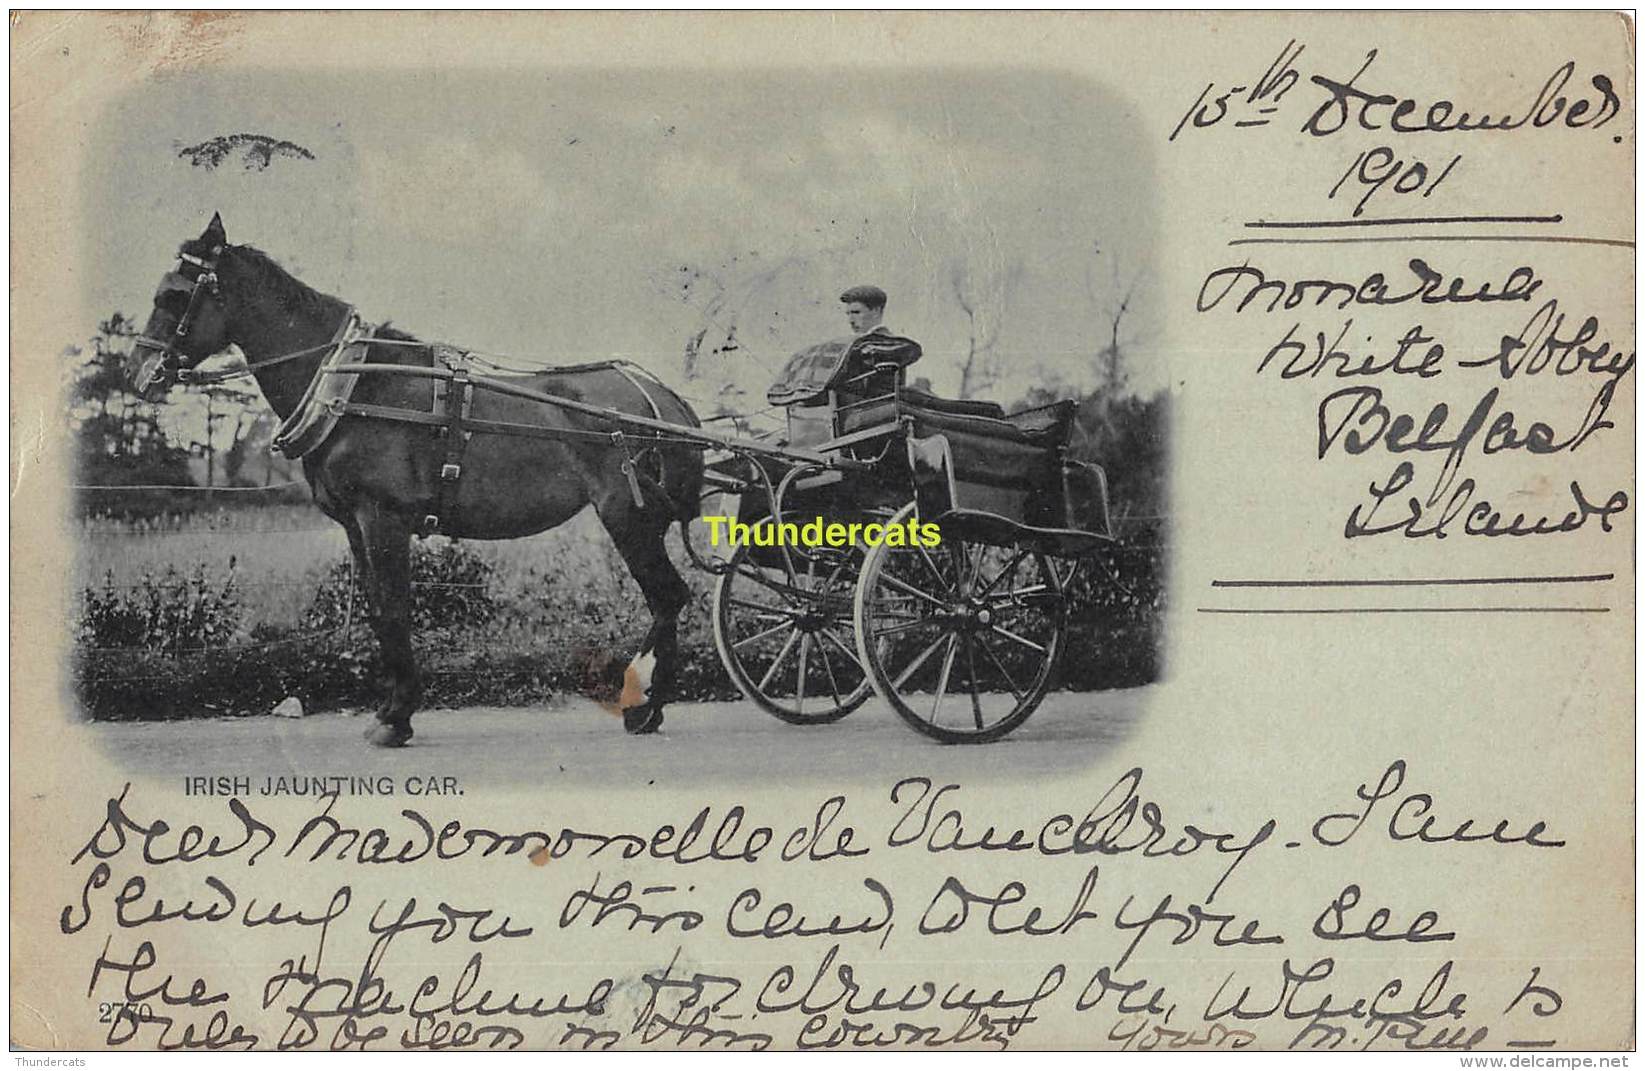 15th December.
1901
White Abbey
Belfast
Irlande
Thundercats
IRISH JAUNTING CAR.
Dear Mademoiselle de Vancelroy. I am
sending you this card, to let you see
the machine for driving on, which is
2770
only to be seen in this country Yours M.
Thundercats
www.delcampe.net